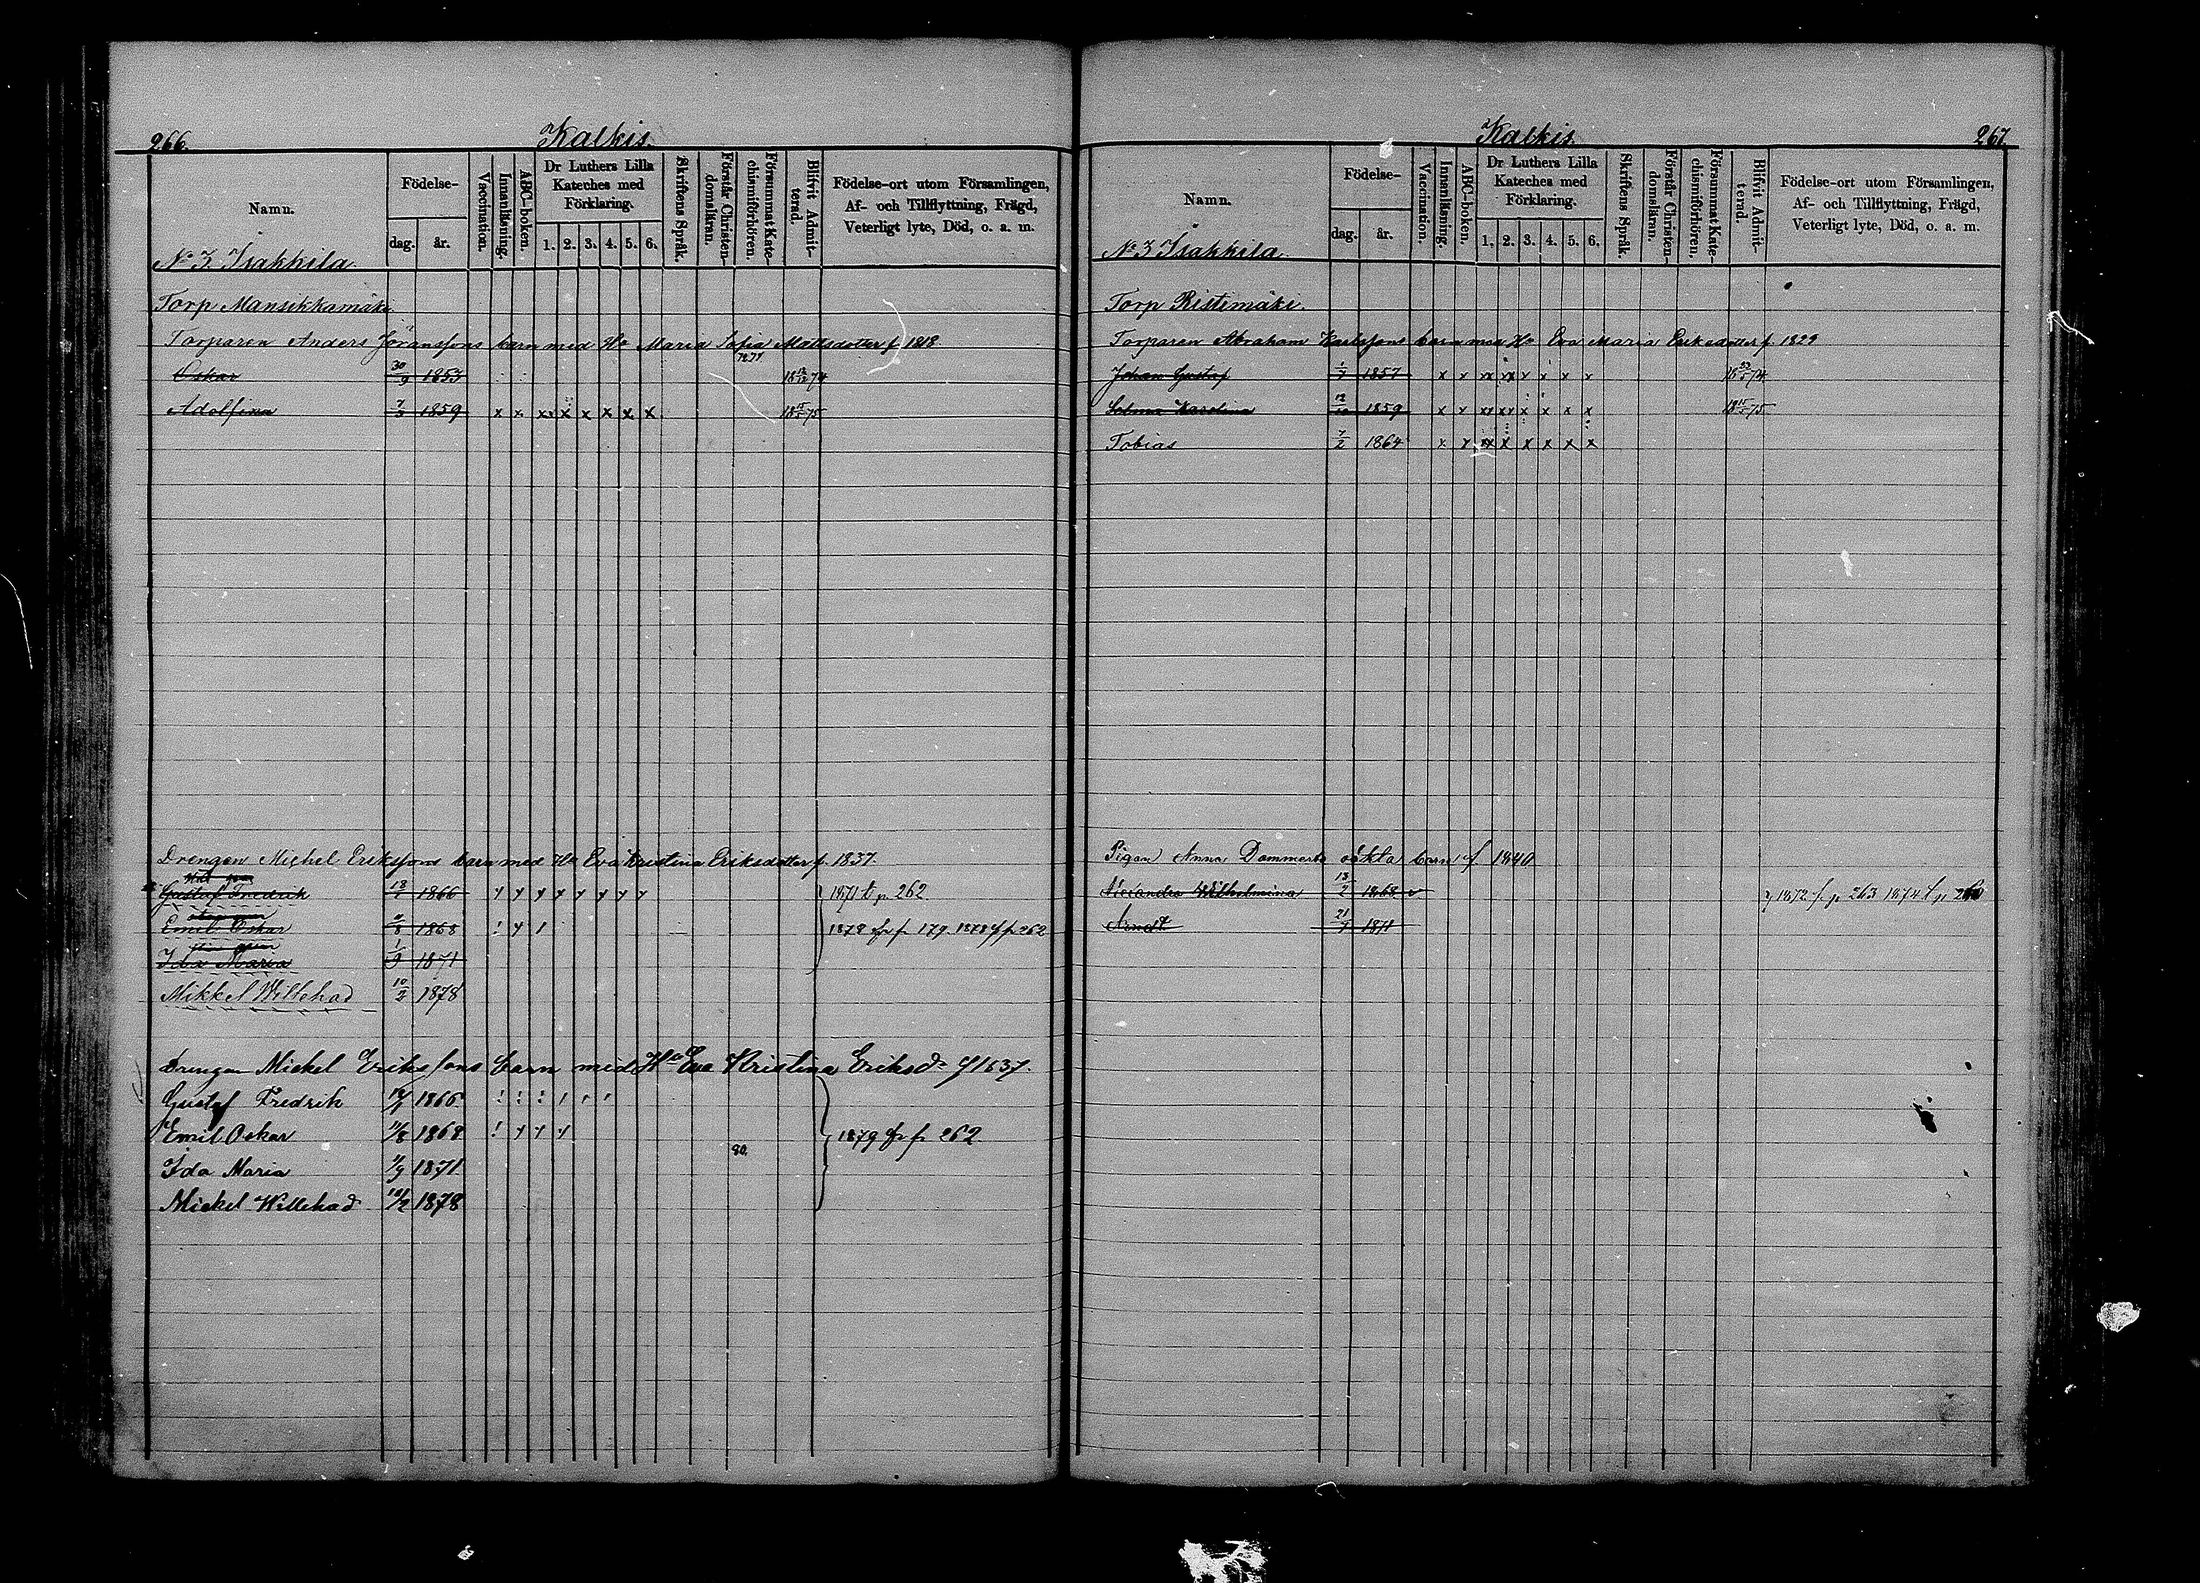 266. Kalkis.
Namn. Födelse- dag. år. Vaccination. Innanläsning. ABC-boken. Dr Luthers Lilla Kateches med Förklaring. 1. 2. 3. 4. 5. 6. Skriftens Språk. Förstår Christendomsläran. Försummat Katechismiförhören. Blifvit Admitterad. Födelse-ort utom Församlingen, Af- och Tillflyttning, Frägd, Veterligt lyte, Död, o. a. m.
No 3 Isakkila
Torp Mansikkamäki
Torparen Anders Göranssons barn med Ho Maria Sofia Mattsdotter f. 1818
Oskar 30/9 1853 18 12/12 74
Adolfina 7/3 1859 x x xx x x x x x 18 15/5 75
Drengen Michel Erikssons barn med Ho Eva Kristina Eriksdotter f. 1837.
Gustaf Fredrik 18/7 1866 1871 t p. 262.
Emil Oskar 11/8 1868 1878 fr p 179. 1878 p 262
Ida Maria 1/9 1871
Mikkel Willehad 10/2 1878
Drengen Mickel Erikssons barn med Ho Eva Kristina Eriksdr f 1837.
Gustaf Fredrik 1866
Emil Oskar 11/8 1868 1879 fr p 262
80.
Ida Maria 1/9 1871
Mickel Willehad 10/2 1878
Kalkis. 267.
Namn. Födelse- dag. år. Vaccination. Innanläsning. ABC-boken. Dr Luthers Lilla Kateches med Förklaring. 1. 2. 3. 4. 5. 6. Skriftens Språk. Förstår Christendomsläran. Försummat Katechismiförhören. Blifvit Admitterad. Födelse-ort utom Församlingen, Af- och Tillflyttning, Frägd, Veterligt lyte, Död, o. a. m.
No 3 Isakkila
Torp Ristimäki.
Torparen Abraham Karlssons barn med Ho Eva Maria Eriksdotter f. 1829
Johan Gustaf 1/7 1857 x x xx xx x x x x 18 23/5 74
Selma Karolina 12/10 1859 x x xx xx x x x x 18 15/5 75
Tobias 7/2 1864 x x xx x x x x x
Pigan Anna Dammerts oäkta barn f. 1840
Alexandra Wilhelmina 13/2 1868 v 1872 fr p 263 1874 t p
21/7 1871